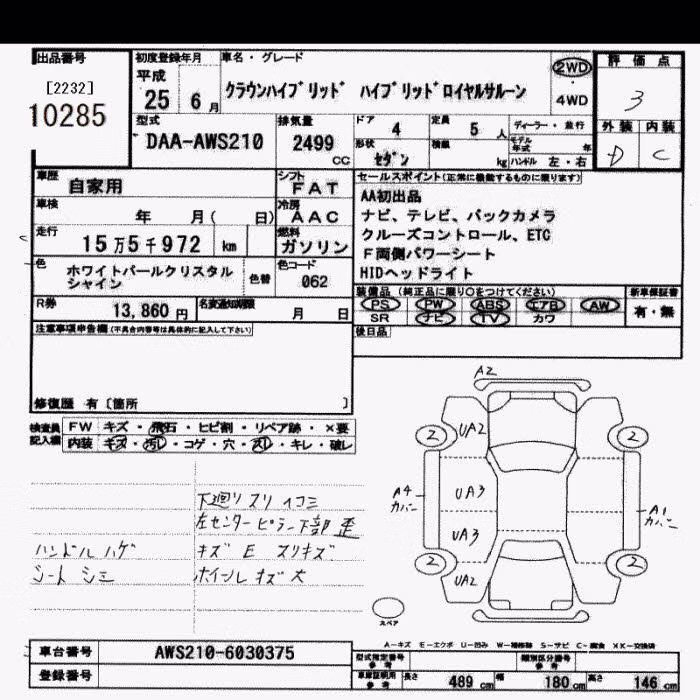 出品番号
[2232]
10285
初度登録年月
平成
25 6 月
車名・グレード
クラウンハイブリッド ハイブリッドロイヤルサルーン
2WD
・
4WD
評価点
3
外装 内装
D C
型式
DAA-AWS210
排気量
2499
cc
ドア
4
定員
5 人
ディーラー・並行
形状
セダン
積載
kg
モデル年式 年
ハンドル 左・右
車歴
自家用
シフト
FAT
車検
年 月( 日)
冷房
AAC
走行
15万5千972 km
燃料
ガソリン
色
ホワイトパールクリスタル
シャイン
色替
色コード
062
R券
13,860 円
名変通知期限
月 日
セールスポイント(正常に機能するものに限ります)
AA初出品
ナビ、テレビ、バックカメラ
クルーズコントロール、ETC
F両側パワーシート
HIDヘッドライト
装備品(純正品に限り○をつけてください)
PS PW ABS エアB AW
SR ナビ TV カワ
新車保証書
有・無
後日品
注意事項申告欄(不具合内容等は具体的に記入して下さい)
修復歴 有〔箇所 〕
検査員
記入欄
FW キズ・飛石・ヒビ割・リペア跡・×要
内装 キズ・汚レ・コゲ・穴・スレ・キレ・破レ
下廻り スリ イコミ
左センターピラー下部 歪
ハンドル ハゲ
キズ E スリキズ
シート シミ
ホイール キズ 大
A2
2 UA2 2
A4
カバー
UA3
A1
カバー
UA3
2 UA2 2
スペア
A-キズ E-エクボ U-凹み W-補修跡 S-サビ C-腐食 XX-交換済
車台番号
AWS210-6030375
登録番号
型式指定番号
参考
類別区分番号
参考
車庫証明用
参考
長さ 489 cm 幅 180 cm 高さ 146 cm